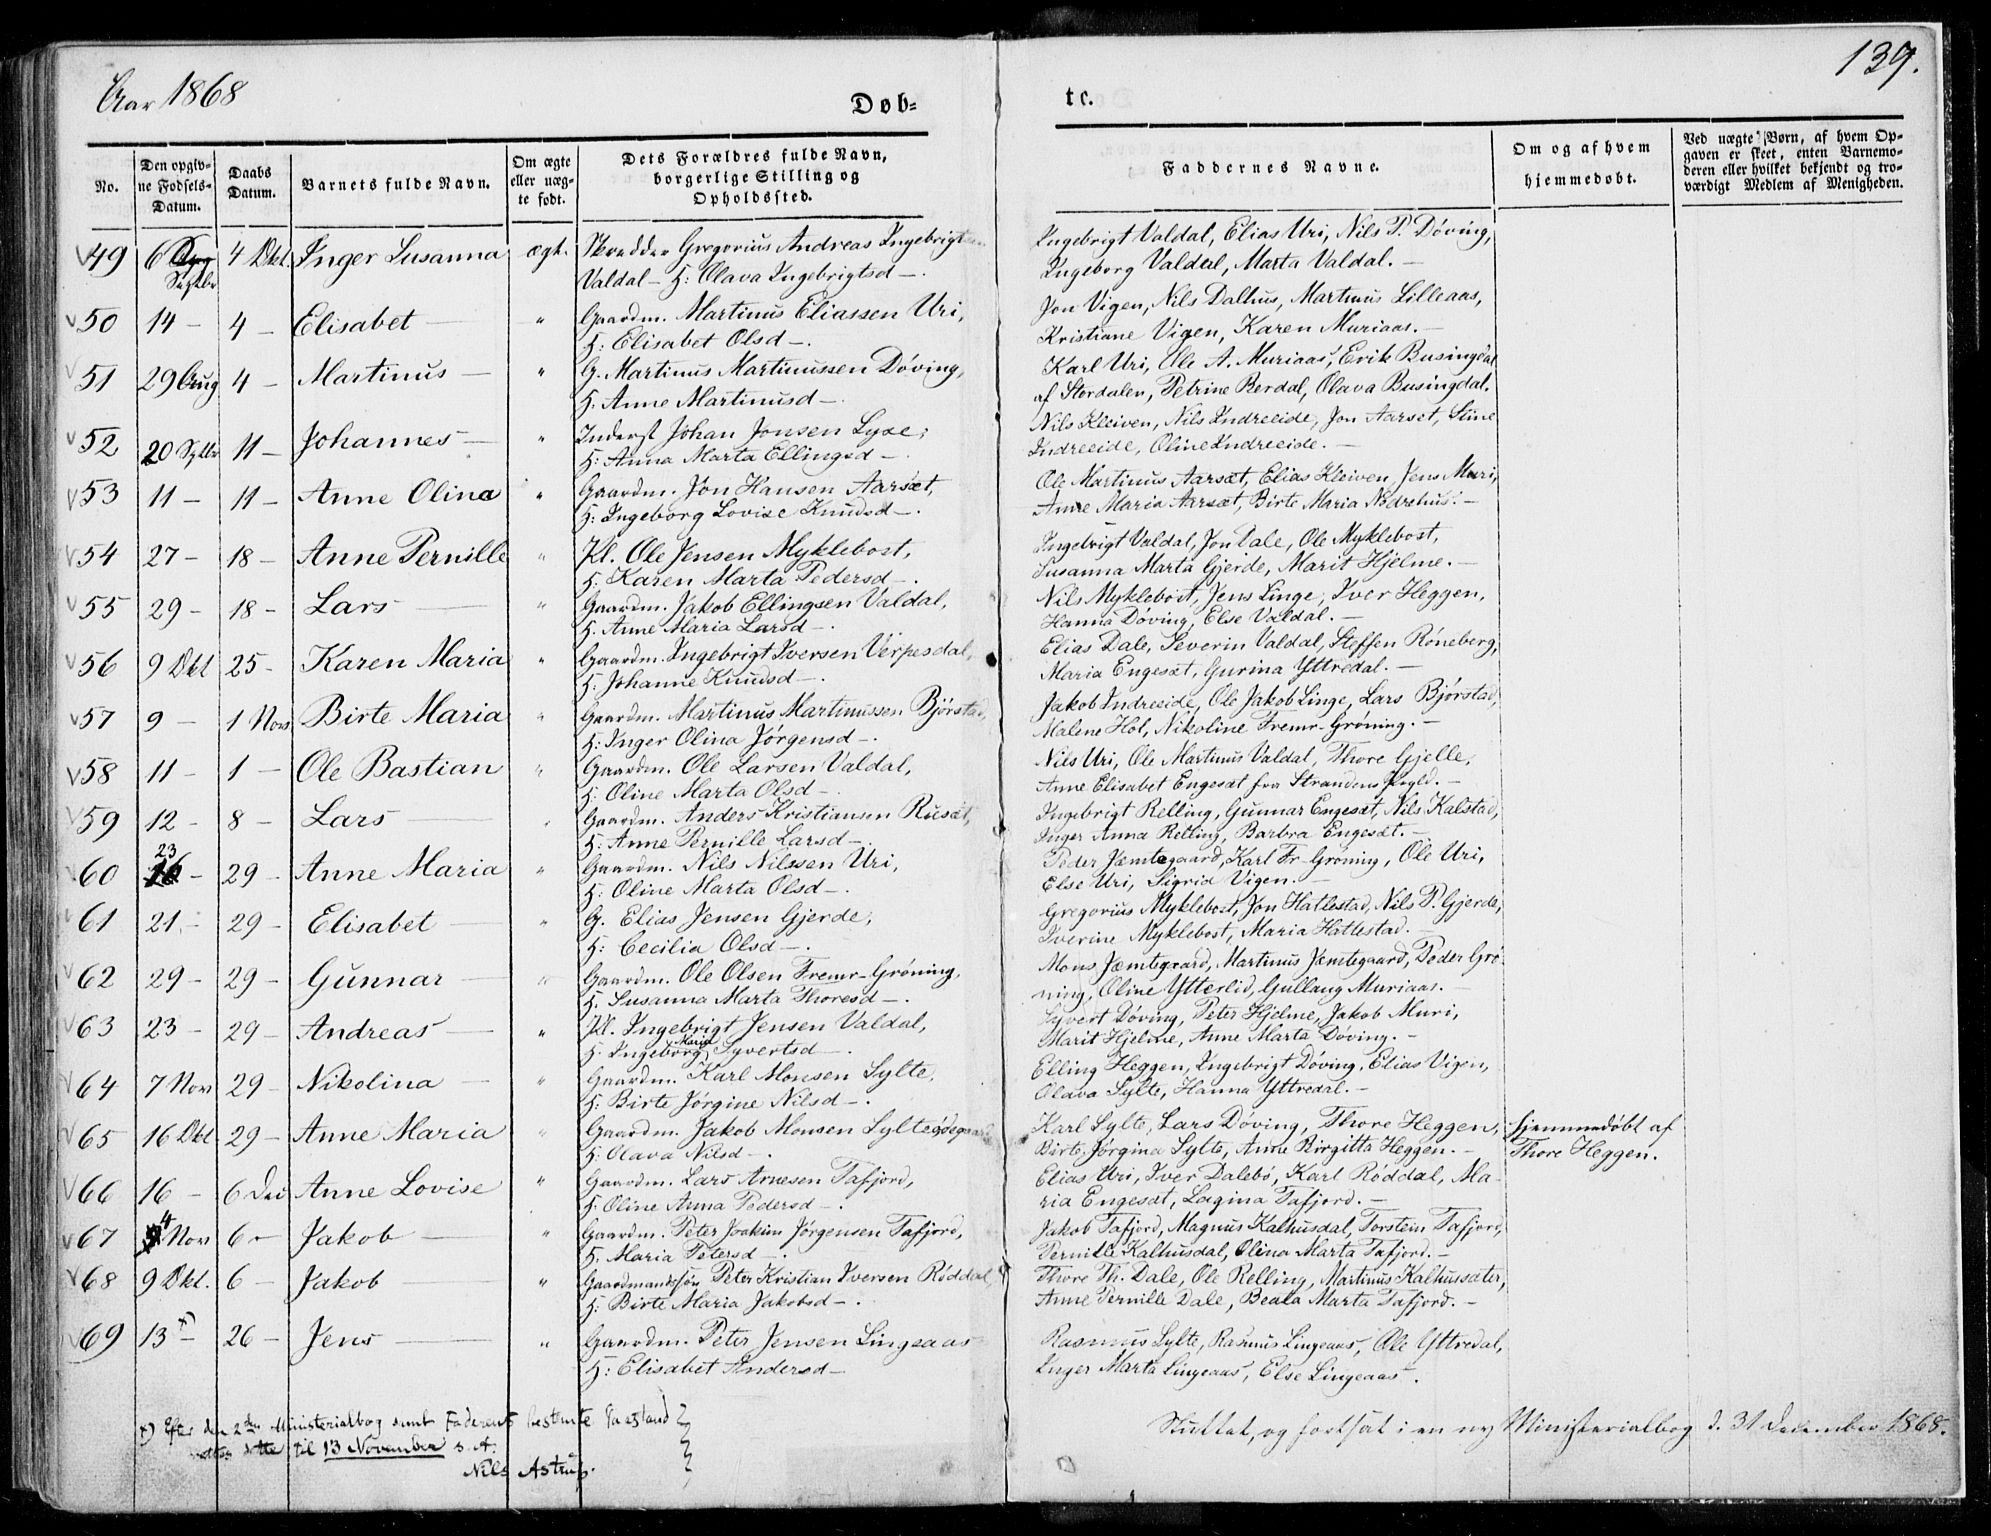 Aar 1868
Døb-
tc.
139.
No.
Den opgiv-
ne Fødsels-
Datum.
Daabs
Datum.
Barnets fulde Navn.
Om ægte
eller uæg-
te født.
Dets Forældres fulde Navn,
borgerlige Stilling og
Opholdssted.
Faddernes Navne.
Om og af hvem
hjemmedøbt.
Ved uægte Børn, af hvem Op-
gaven er skeet, enten Barnemo-
deren eller hvilket bekjendt og tro-
værdigt Medlem af Menigheden.
49 6 Septbr 4 Okt. Inger Susanna ægt. Skrædder Gregorius Andreas Ingebrigtsen
Valdal - H: Olava Ingebrigtsd -.
Ingebrigt Valdal, Elias Uri, Nils P. Døving,
Ingeborg Valdal, Marta Valdal. -
50 14 - 4 - Elisabet - " Gaardm. Martinus Eliassen Uri,
H: Elisabet Olsd -.
Jon Vigen, Nils Dalhus, Martinus Lilleaas,
Kristiane Vigen, Karen Muriaas. -
51 29 Aug 4 - Martinus - " G. Martinus Martinussen Døving,
H: Anne Martinusd -.
Karl Uri, Ole A. Muriaas, Erik Busingdal
af Stordalen, Petrine Berdal, Olava Busingdal.
52 20 Septbr 11 - Johannes - " Inderst Johan Jonsen Lyxe,
H: Anna Marta Ellingsd -.
Nils Kleiven, Nils Indreeide, Jon Aarset, Stine
Indreeide, Oline Indreeide. -
53 11 - 11 - Anne Olina " Gaardm. Jon Hansen Aarsæt,
H: Ingeborg Lovise Knudsd -.
Ole Martinus Aarsæt, Elias Kleiven, Jens Muri,
Anne Maria Aarsæt, Birte Maria Nedrehus. -
54 27 - 18 - Anne Pernille " Kl. Ole Jensen Myklebost,
H. Karen Marta Pedersd -.
Ingebrigt Valdal, Jon Dale, Ole Myklebost,
Susanna Marta Gjerde, Marit Hjelme. -
55 29 - 18 - Lars - " Gaardm. Jakob Ellingsen Valdal,
H. Anne Maria Larsd -.
Nils Myklebost, Jens Linge, Iver Heggen,
Hanna Døving, Else Valdal. -
56 9 Okt 25 - Karen Maria " Gaardm. Ingebrigt Iversen Verpesdal,
H: Johanne Knudsd -.
Elias Dale, Severin Valdal, Steffen Røneberg,
Maria Engesæt, Gurina Yttredal. -
57 9 - 1 Nov Birte Maria " Gaardm. Martinus Martinussen Bjørstad,
H: Inger Olina Jørgensd -.
Jakob Indreeide, Ole Jakob Linge, Lars Bjørstad,
Malene Hol, Nikoline Fremr-Grøning. -
58 11 - 1 - Ole Bastian " Gaardm. Ole Larsen Valdal,
H: Oline Marta Olsd -.
Nils Uri, Ole Martinus Valdal, Thore Gjelle,
Anne Elisabet Engesæt fra Strandens Prgld. -
59 12 - 8 - Lars - " Gaardm. Anders Kristiansen Rusæt,
H: Anne Pernille Larsd -.
Ingebrigt Relling, Gunnar Engesæt, Nils Kalstad,
Inger Anna Relling, Barbra Engesæt. -
60 23 - 29 - Anne Maria " Gaardm. Nils Nilssen Uri,
H: Oline Marta Olsd -.
Peder Jæmtegaard, Karl Fr-Grøning, Ole Uri,
Else Uri, Sigrid Vigen. -
61 21 - 29 - Elisabet - " G. Elias Jensen Gjerde,
H: Cecilia Olsd -.
Gregorius Myklebost, Jon Hatlestad, Nils P. Gjerde,
Iverine Myklebost, Maria Hatlestad. -
62 29 - 29 - Gunnar - " Gaardm. Ole Olsen Fremr-Grøning,
H. Susanna Marta Thoresd -.
Mons Jæmtegaard, Martinus Jæmtegaard, Peder Grø-
ning, Oline Ytterlid, Gullaug Muriaas. -
63 23 - 29 - Andreas - " Kl. Ingebrigt Jensen Valdal,
H. Ingeborg Maria Syvertsd -.
Syvert Døving, Peter Hjelme, Jakob Muri,
Marit Hjelme, Anne Marta Døving. -
64 7 Nov 29 - Nikolina - " Gaardm. Karl Monsen Sylte,
H: Birte Jørgine Nilsd -.
Elling Heggen, Ingebrigt Døving, Elias Vigen,
Olava Sylte, Hanna Yttredal. -
65 16 Okt 29 - Anne Maria " Gaardm. Jakob Monsen Sylteødegaard
H: Olava Nilsd -.
Karl Sylte, Lars Døving, Thore Heggen,
Birte Jørgina Sylte, Anne Birgitta Heggen. -
hjemmedøbt af
Thore Heggen.
66 16 - 6 Dec Anne Lovise " Gaardm. Lars Arnesen Tafjord,
H: Oline Anna Pedersd -.
Elias Uri, Iver Dalebø, Karl Røddal, Ma-
ria Engesæt, Lagina Tafjord. -
67 4 Nov 6 - Jakob - " Gaardm. Peter Joakim Jørgensen Tafjord,
H. Maria Petersd -.
Jakob Tafjord, Magnus Kalhusdal, Torstein Tafjord,
Pernille Kalhusdal, Olina Marta Tafjord. -
68 9 Okt. 6 - Jakob - " Gaardmandssøn Peter Kristian Iversen Røddal,
H: Birte Maria Jakobsd -.
Thore Th. Dale, Ole Relling, Martinus Kalhussæter,
Anne Pernille Dale, Beata Marta Tafjord. -
69 13 x) - 26 - Jens - " Gaardm. Peter Jensen Lingeaas
H: Elisabet Andersd -
Rasmus Sylte, Rasmus Lingeaas, Ole Yttredal,
Inger Marta Lingeaas, Else Lingeaas.
x) Efter den 2den Ministerialbog samt Faderens bestemte Paastand
rettes dette til 13 November s. A.
Nils Astrup.
Sluttet, og fortsat i en ny Ministerialbog d. 31 December 1868.